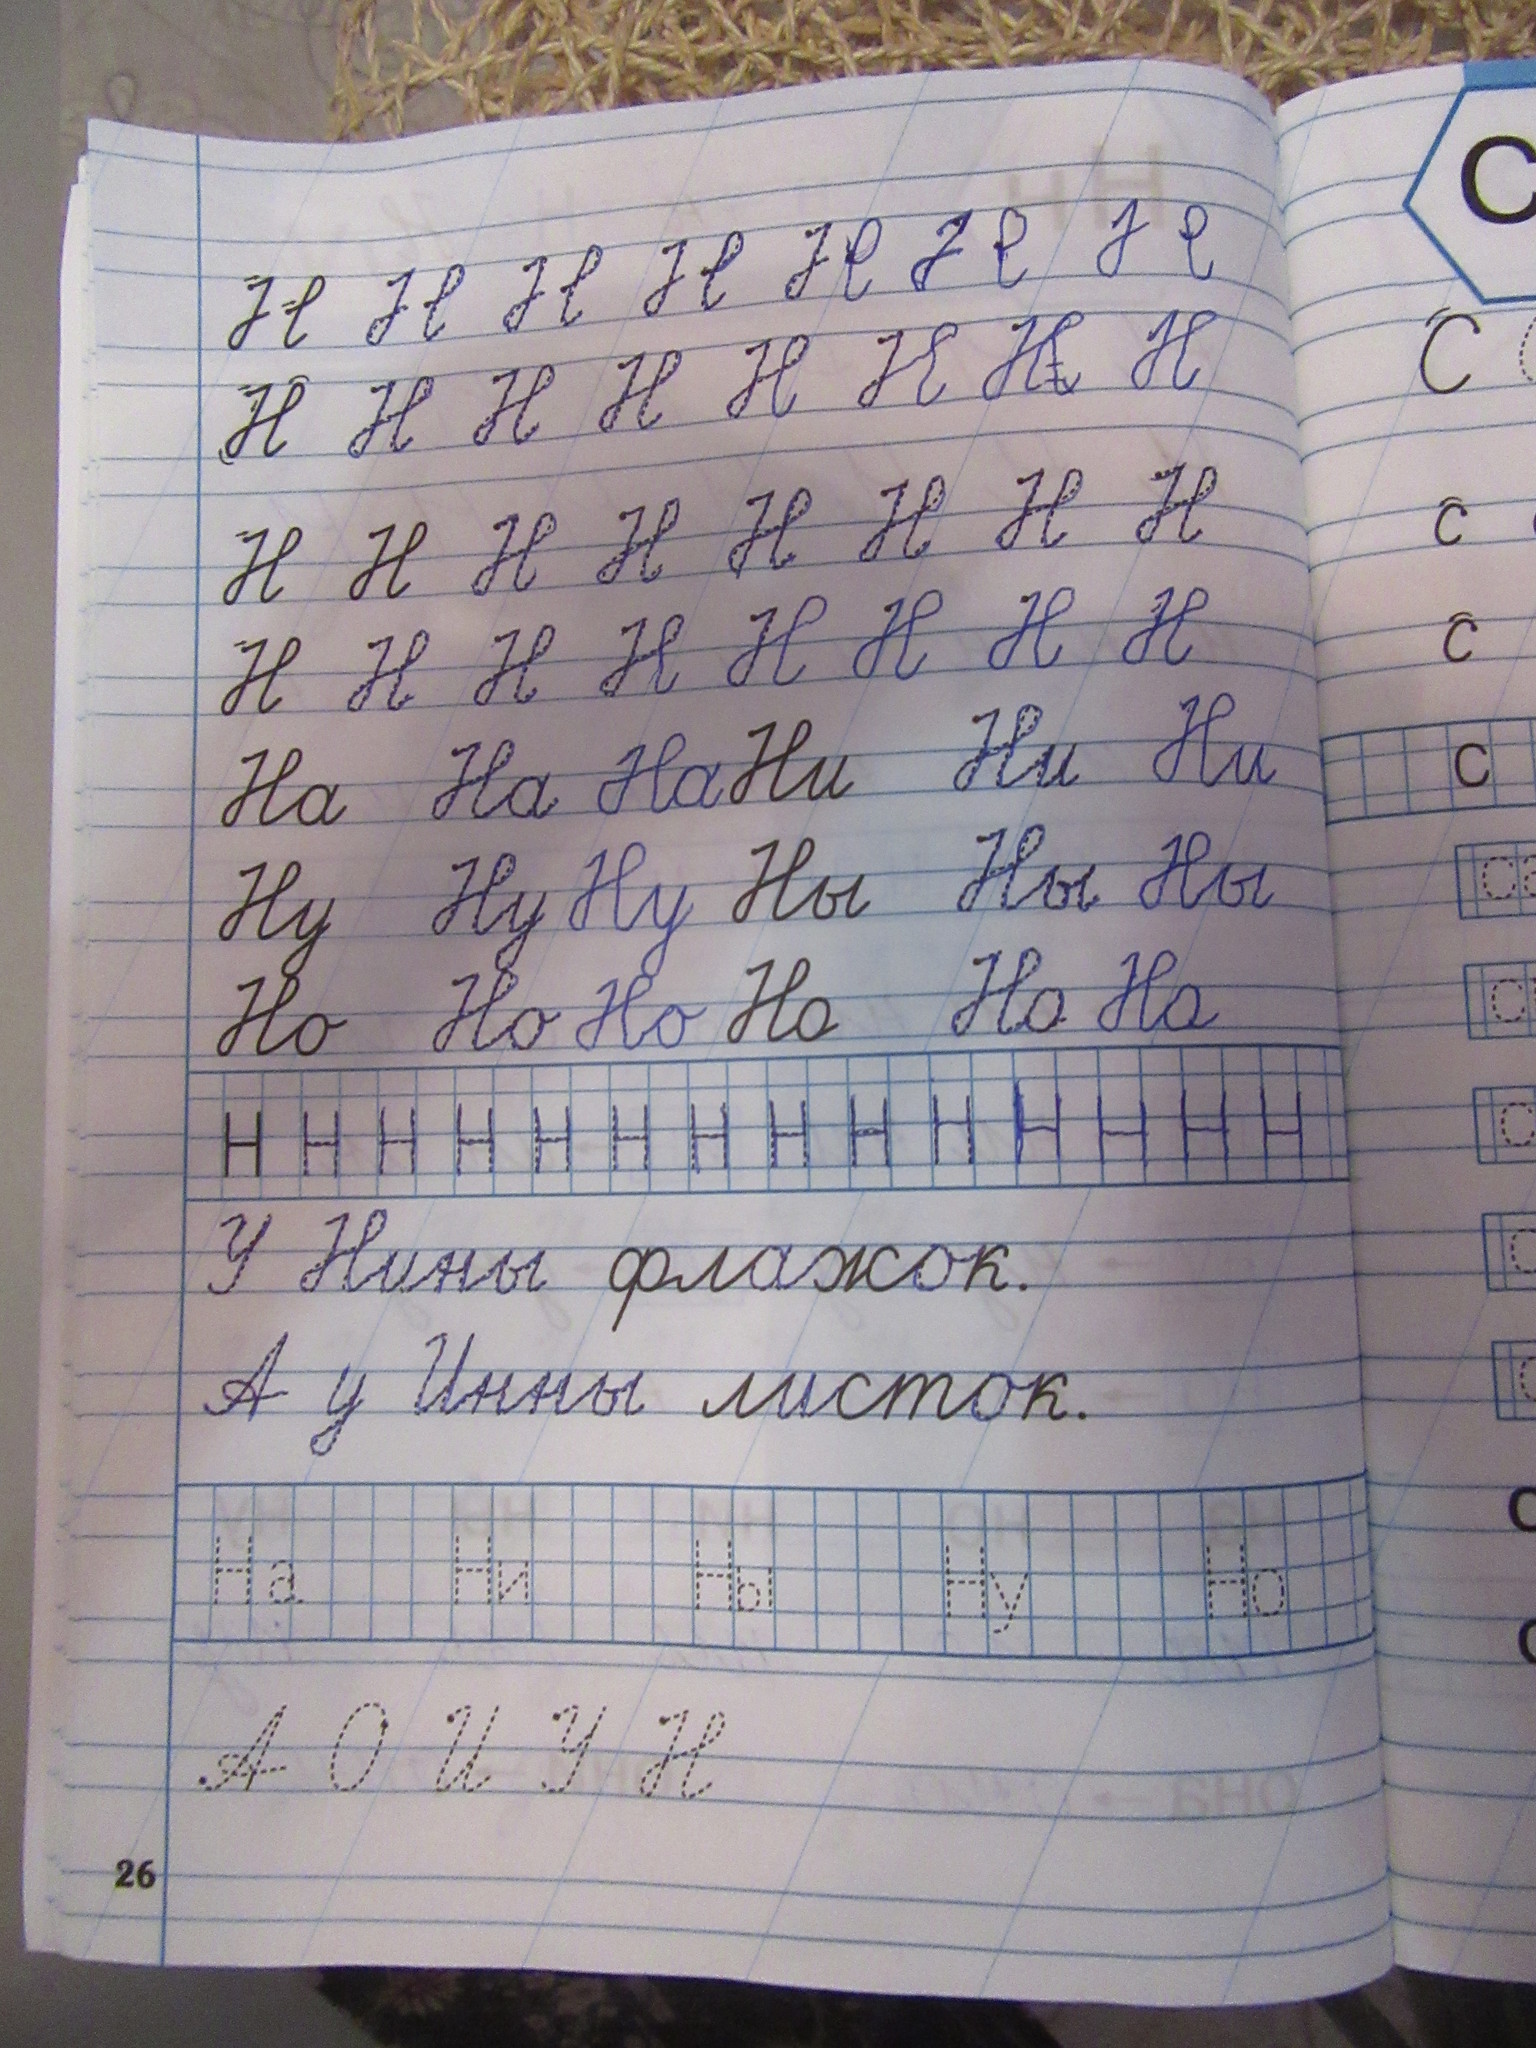 Н Н Н Н Н Н Н
Н Н Н Н Н Н Н Н
Н Н Н Н Н Н Н Н
Н Н Н Н Н Н Н Н
На На На Ни Ни Ни
Ну Ну Ну Ны Ны Ны
Но Но Но Но Но Но
Н Н Н Н Н Н Н Н Н Н Н Н Н Н
У Нины флажок.
А у Инны листок.
На Ни Ны Ну Но
А О И У Н
26
С
С
с
с
с